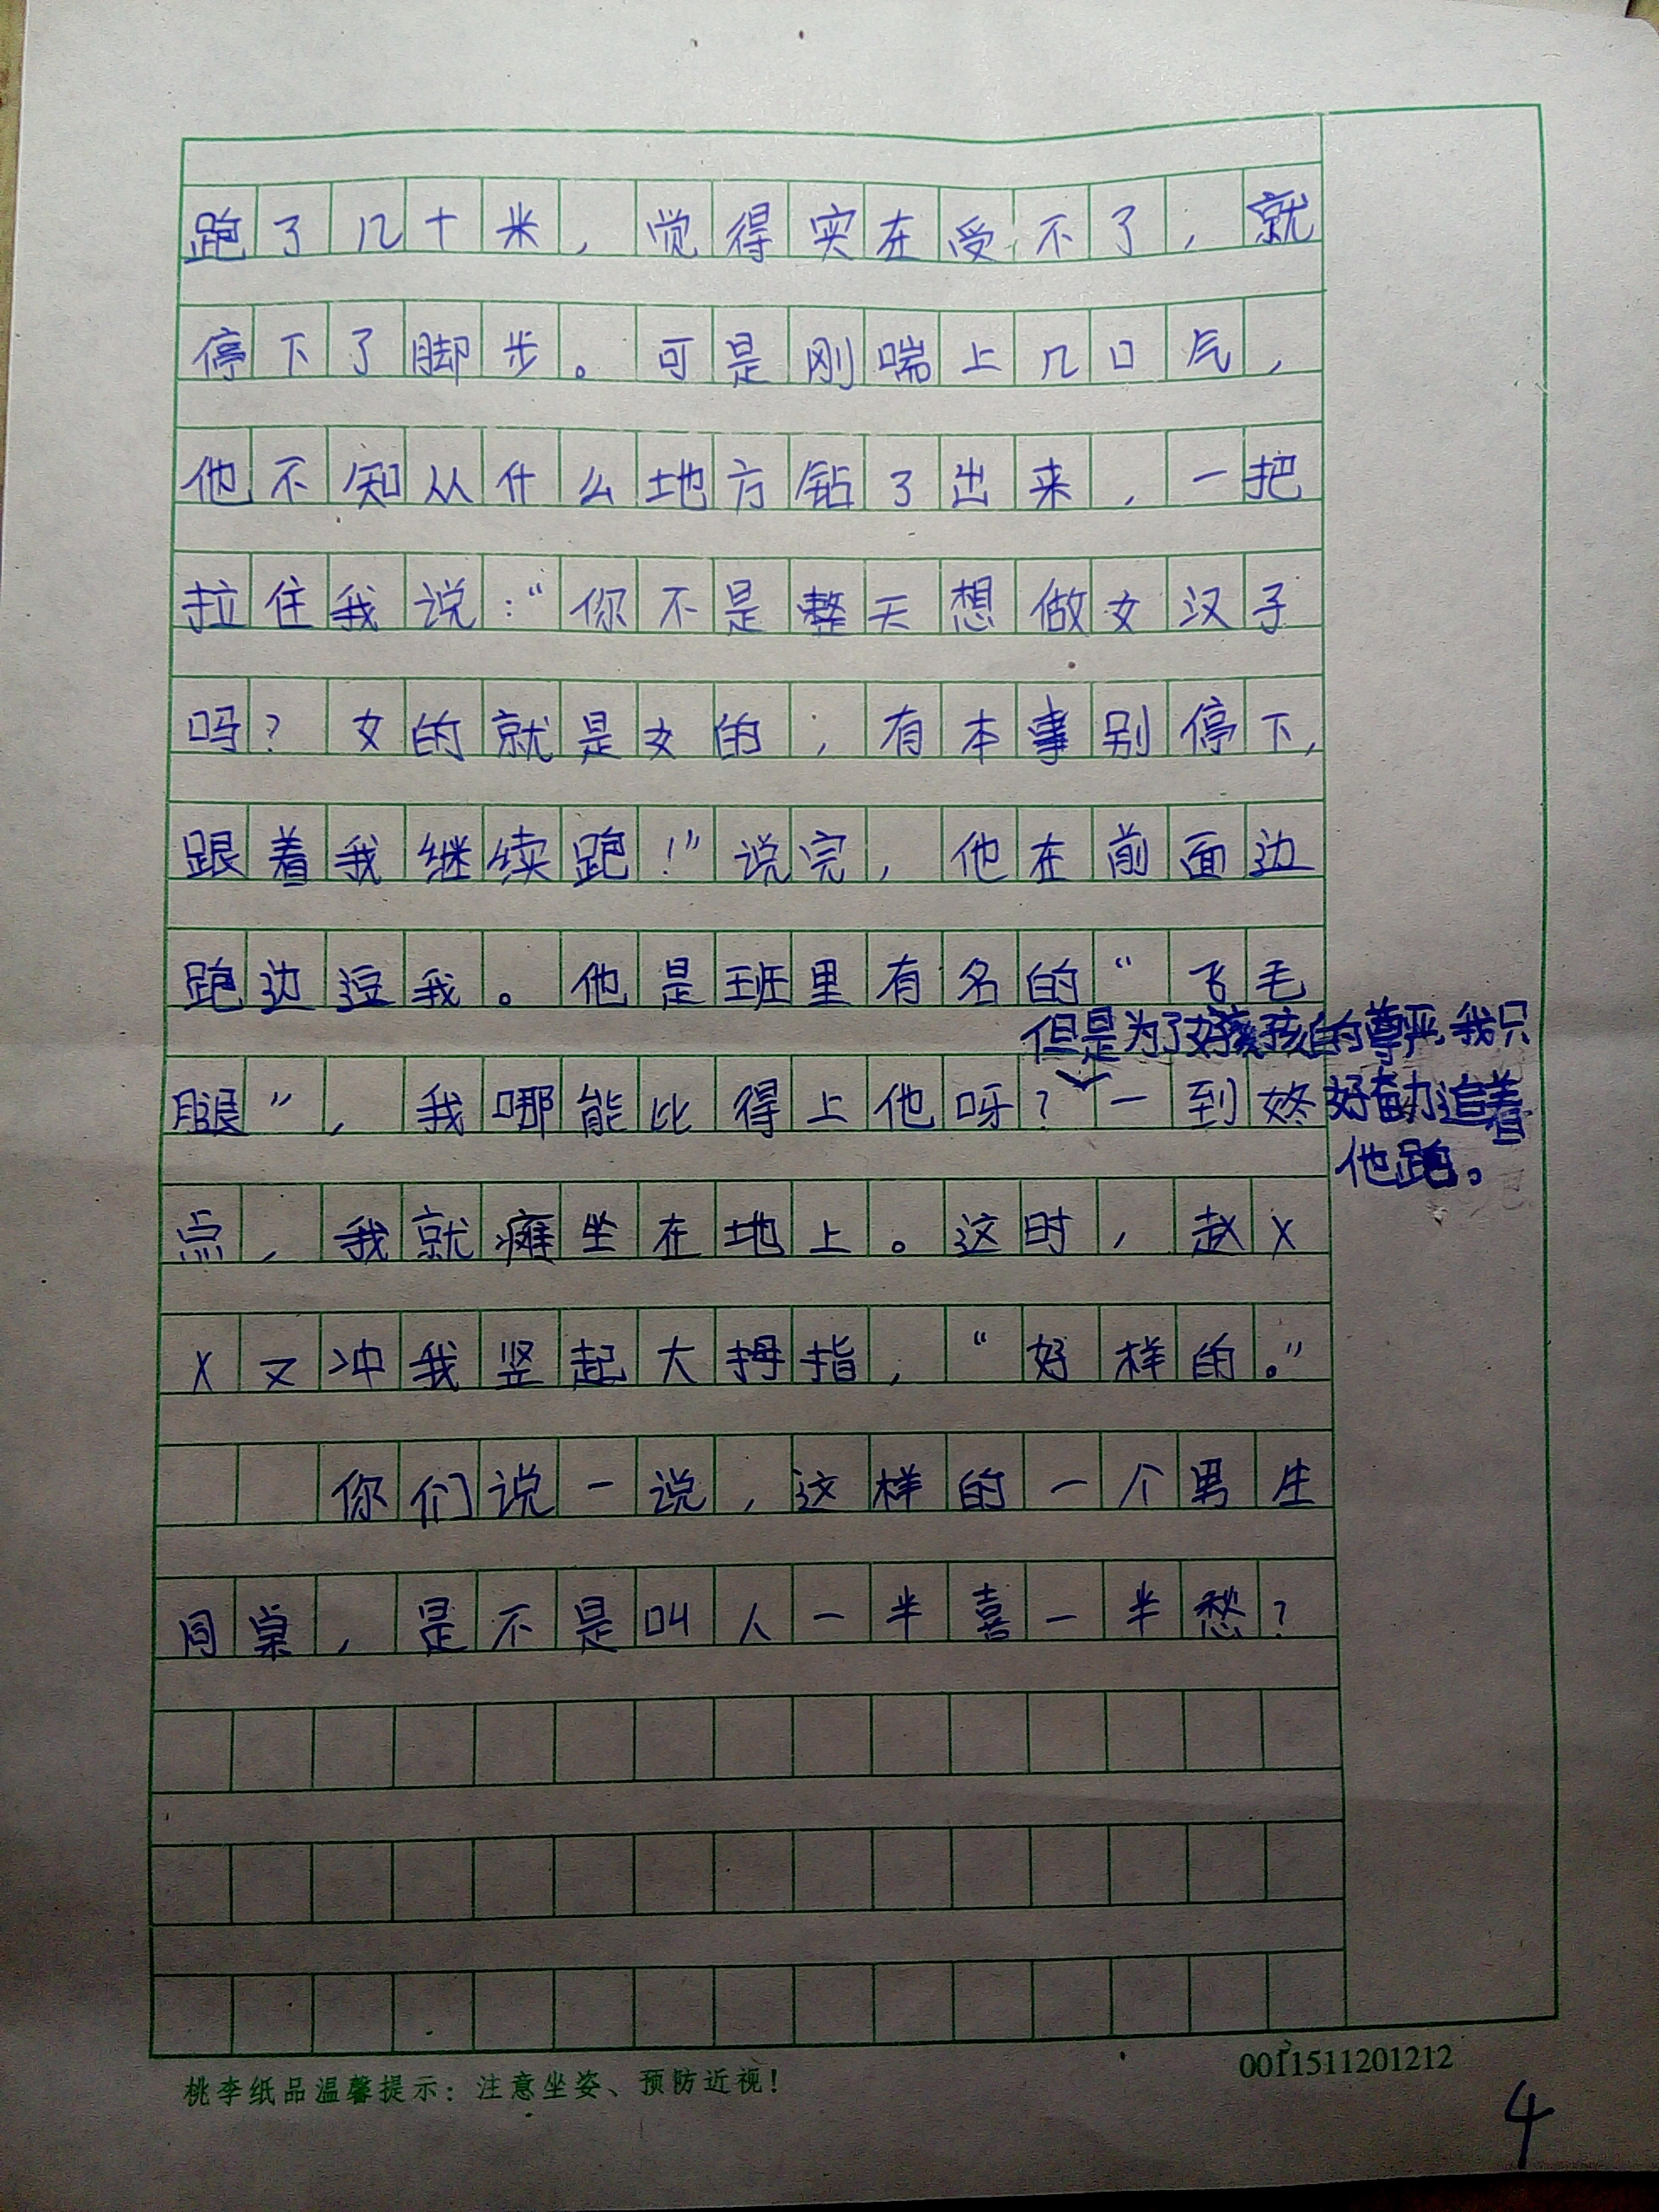 跑了几十米，觉得实在受不了，就
停下了脚步。可是刚喘上几口气，
他不知从什么地方钻了出来，一把
拉住我说：“你不是整天想做女汉子
吗？女的就是女的，有本事别停下，
跟着我继续跑！”说完，他在前面边
跑边逗我。他是班里有名的“飞毛
腿”，我哪能比得上他呀？一到终
但是为了女孩的尊严，我只
好奋力追着
他跑。
点，我就瘫坐在地上。这时，赵X
X又冲我竖起大拇指，“好样的。”
你们说一说，这样的一个男生
同桌，是不是叫人一半喜一半愁？
桃李纸品温馨提示：注意坐姿、预防近视！
0011511201212
4